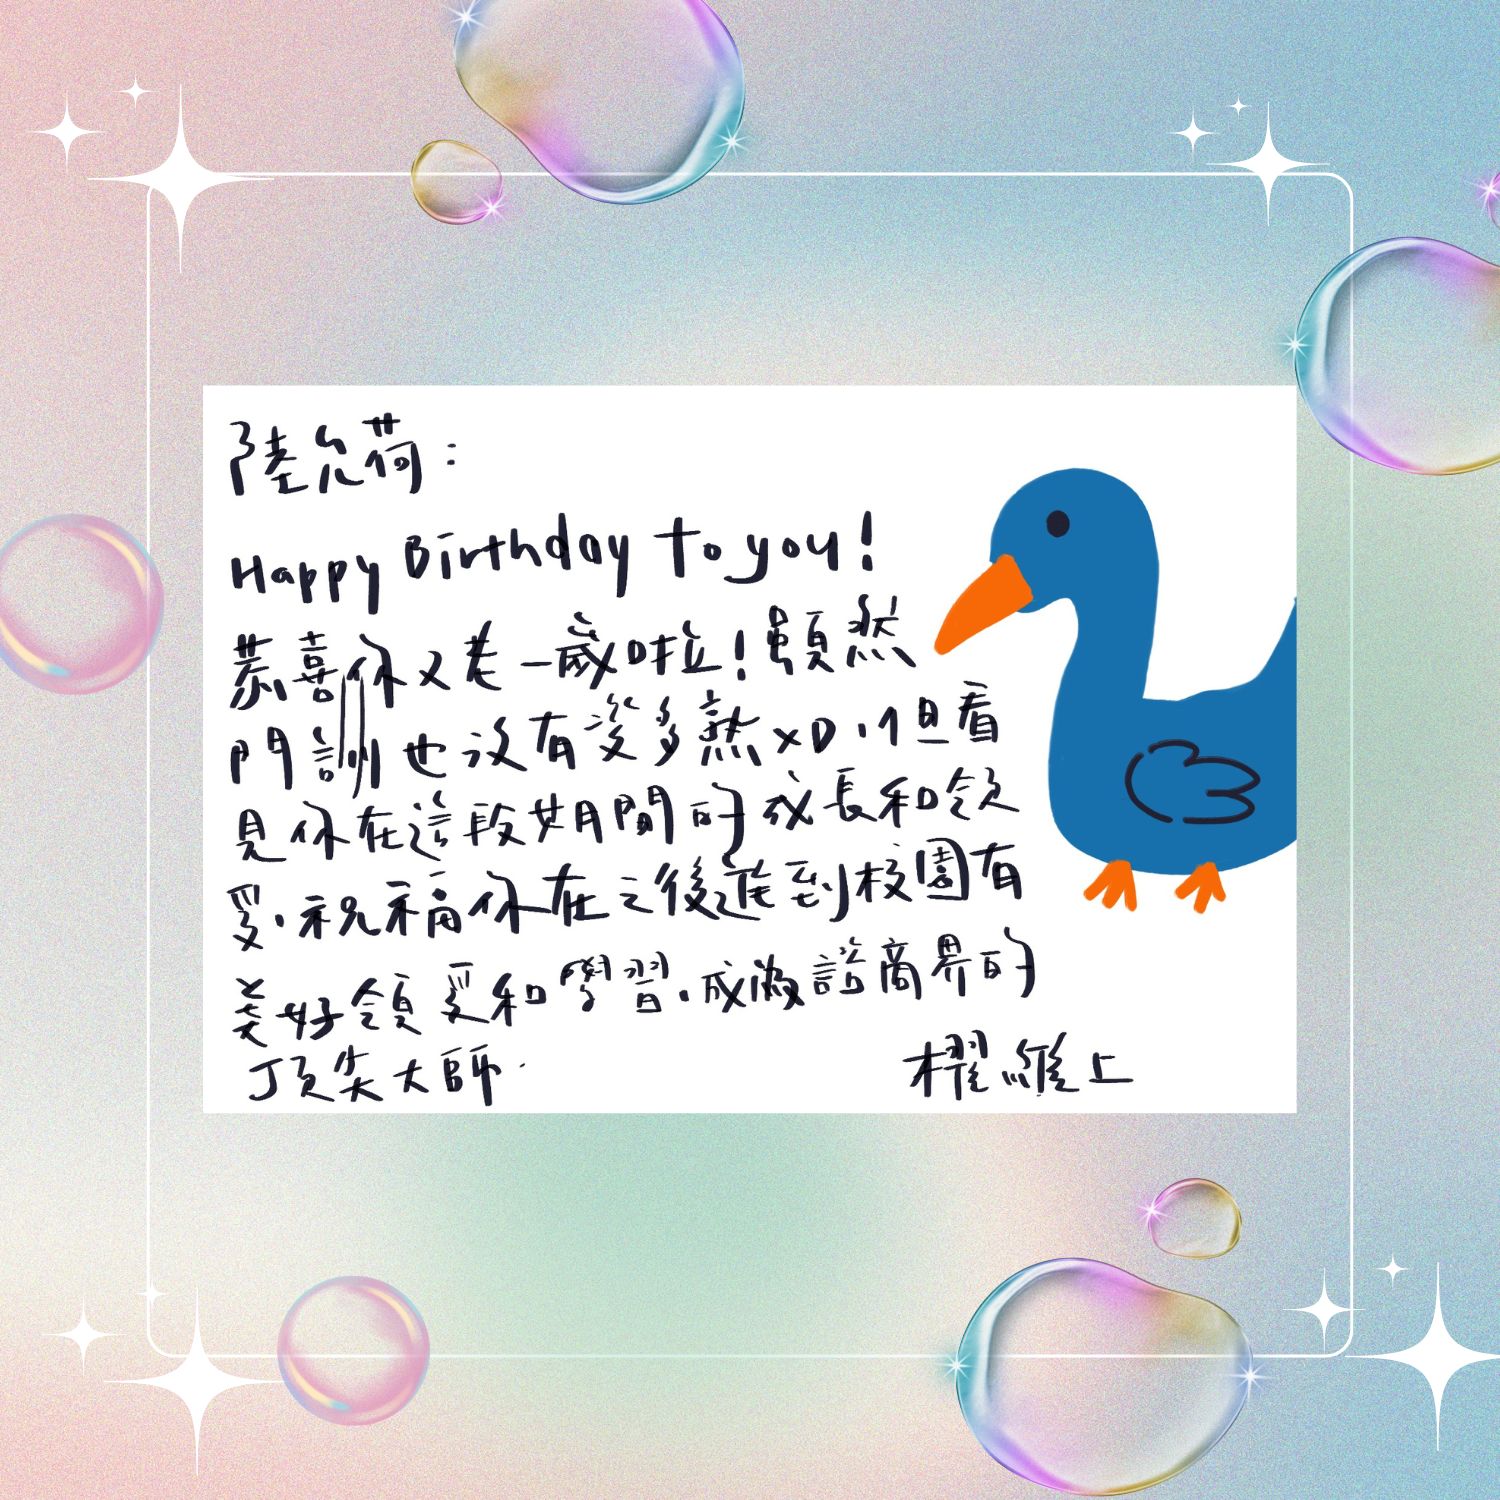 陸允荷：
Happy Birthday to you!
恭喜你又老一歲啦！雖然
門訓也沒有沒多熟xD，但看
見你在這段期間的成長和領
受，祝福你在之後進到校園有
美好領受和學習，成為諮商界的
頂尖大師．
櫂維上